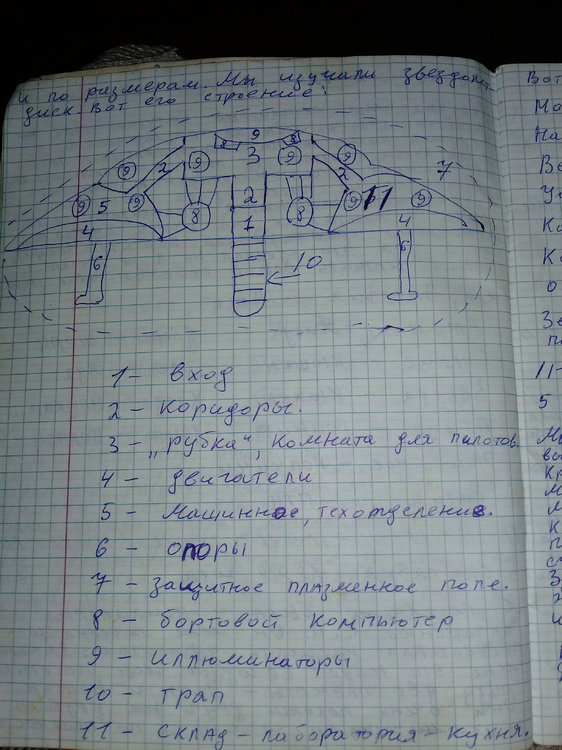 и по размерам. Мы изучали звездолет
диск. Вот его строение:
9
8 8
9 3 9 9
9 2 2 7
9 5 9 8 2 8 9 11 9
4 1 4
6 6
10
1 - вход
2 - коридоры.
3 - „рубка", комната для пилотов.
4 - двигатели
5 - машинное, техотделение.
6 - опоры
7 - защитное плазменное поле.
8 - бортовой компьютер
9 - иллюминаторы
10 - трап
11 - склад - лаборатория - кухня.
Вот
На
Ка
О
11-
5